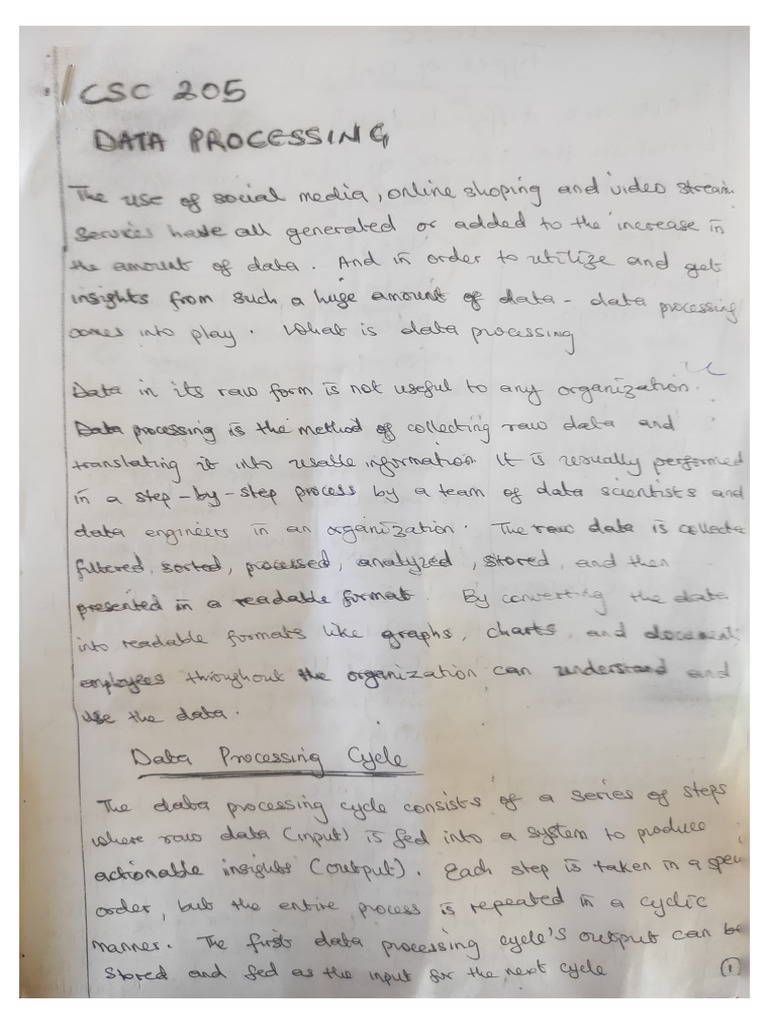 CSC 205
DATA PROCESSING
The use of social media, online shoping and video stream
Services have all generated or added to the increase in
the amount of data. And in order to utilize and get
insights from such a huge amount of data - data processing
comes into play. What is data processing
Data in its raw form is not useful to any organization.
Data processing is the method of collecting raw data and
translating it into usable information. It is usually performed
in a step-by-step process by a team of data scientists and
data engineers in an organization. The raw data is collecte
filtered, sorted, processed, analyzed, stored, and then
presented in a readable format. By converting the data
into readable formats like graphs, charts, and document
employees throughout the organization can understand and
use the data.
Data Processing Cycle
The data processing cycle consists of a series of steps
where raw data (input) is fed into a system to produce
actionable insights (output). Each step is taken in a spec
order, but the entire process is repeated in a cyclic
manner. The first data processing cycle's output can be
Stored and fed as the input for the next cycle
1